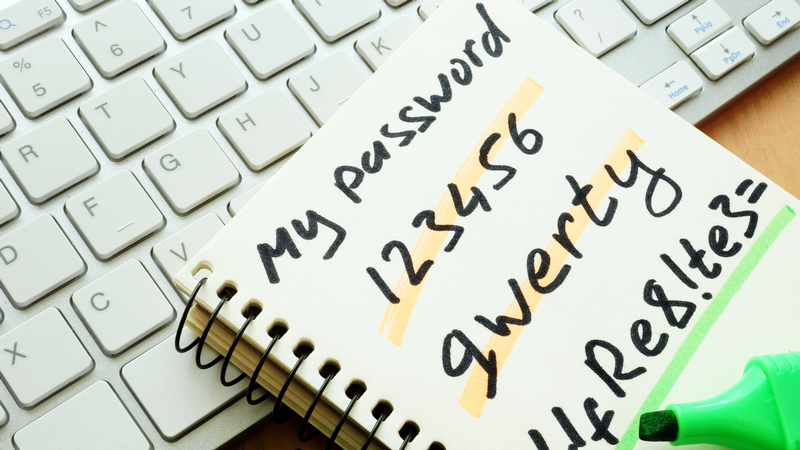 My password
123456
qwerty
fRe8!te3=
F5
%
5
^
6
&
7
R
T
Y
U
D
F
G
H
J
K
X
C
V
?
/
PgUp
PgDn
Home
End